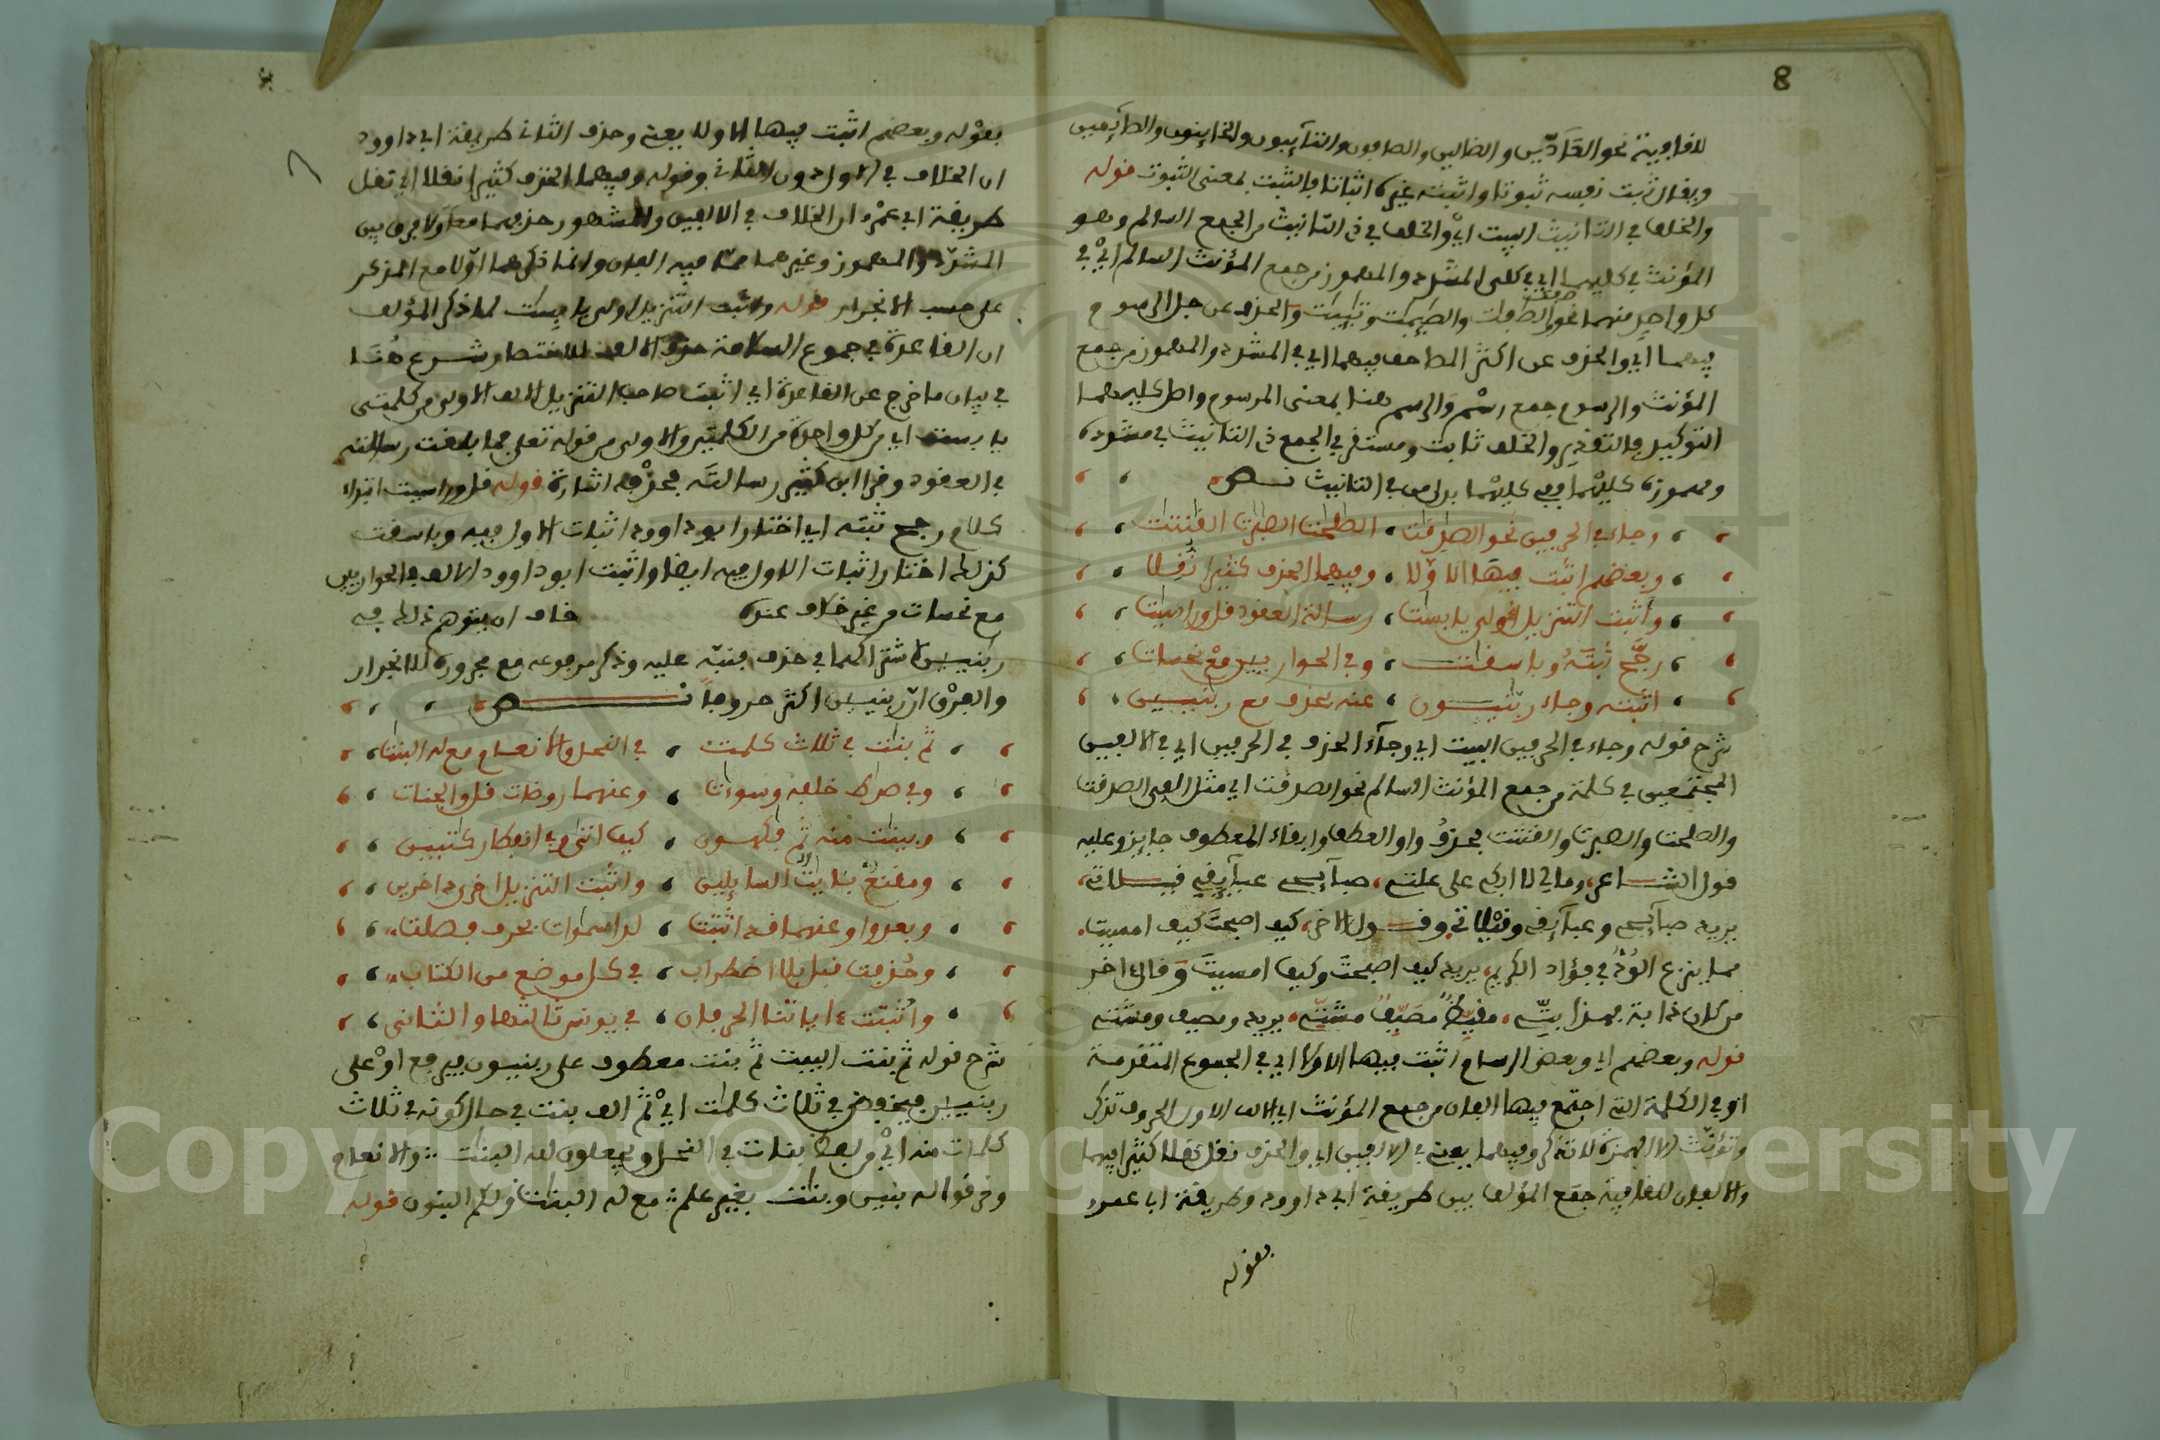 8
للافادية نحو العادّين والضالين والصافون والتآيبون والخاينون والطآيعين
ويقال ثبت نفسه ثبوتا واثبته غيره اثباتا فالثبت بمعنى الثبوت قوله
والخلف في التانيث البيت اي والخلف في ذي التانيث من الجمع السالم وهو
المؤنث في كليهما اي في كلى المشدد والمهموز من جمع المؤنث السالم اي في
كل واحد منهما نحو الصٰفٰت والصٰيمٰت وتٰيبٰت والحذف عن جل الرسوم
فيهما اي والحذف عن اكثر المصاحف فيهما اي في المشدد والمهموز من جمع
المؤنث والرسوم جمع رسم والرسم هنا بمعنى المرسوم واصل كليهما
التوكيل والتقدير والخلف ثابت ومستقر في الجمع ذي التانيث في مشدده
ومهموزه كليهما ففي كليهما بدل من في التانيث نص
وجاء في الحرفين نحو الصٰدقٰت ، الصٰلحٰت الصٰبرٰت القٰنتٰت
وبعضهم اثبت فيها الاولا ، وفيهما الحذف كثيرا نقلا
واثبت التنزيل اولى يابسات ، رسالة العقود قل وراسيات
رجح ثبته وباسقات ، وفي الحواريين مع نحسات
اثبته وجاء ربنيون ، عنه بحذف مع ربنيين
شرح قوله وجاء في الحرفين البيت اي وجآء الحذف في الحرفين اي في الالفين
المجتمعين في كلمة من جمع المؤنث السالم نحو الصدقت اي مثل الفي الصدقت
والصلحت والصبرت والقنتت بحذف واو العطف وابقاء المعطوف جايز وعليه
قول الشاعر وما لي لا ابكي على علتي ، صبآيحي عبآيقي قيلاتي
يريد صبآيحي وعبآيقي وقيلاتي وقول الاخر كيف اصبحت كيف امسيت
مما يزرع الود في فؤاد الكريم يريد كيف اصبحت وكيف امسيت وقال اخر
من كان ذا بت فهذا بتي ، مقيظ مصيف مشتي ، يريد ومصيف ومشتي
قوله وبعضهم اي وبعض الرسام اثبت فيها الاولا اي في الجموع المتقدمة
او في الكلمة التي اجتمع فيها الفان من جمع المؤنث اي الالف الاول الحروف تذكر
وتؤنث الا الهمزة فلا تذكر وفيهما يعني في الالفين اي والحذف نقل نقلا كثيرا فيهما
والالفان للقافية جمع المؤلف بين طريقة ابي داوود وطريقة ابا عمرو
بقوله
بقوله وبعضهم اثبت فيها الاولا يعني وحذف الثاني طريقة ابي داوود
ان الخلاف في الاول دون الثاني وقوله وفيهما الحذف كثيرا نقلا اي نقل
طريقة ابي عمرو ان الخلاف في الالفين والمشهور حذفهما معا ولا فرق بين
المشدد والمهموز وغيرهما مما فيه الفان وانما ذكرهما اولا مع المذكر
على حسب الانجرار قوله واثبت التنزيل اولى يابسات لما ذكر المؤلف
ان القاعدة في جموع السلامة حذف الالف للاختصار شرع هنا
في بيان ما خرج عن القاعدة اي اثبت صاحب التنزيل الالف الاولى من كلمتي
يابست اي من كل واحدة من الكلمتين والاولى من قوله تعلى فما بلغت رسالته
في العقود وقرا ابن كثير رسالته فحذفه اشارة قوله قل وراسيت ابتداء
كلام رجح ثبته اي اختار ابو داوود اثبات الاول فيه وباسقت
كذلك اختار اثبات الاول فيه ايضا واثبت ابو داوود الالف في الحواريين
مع نحسات من غير خلاف عنده خاف ان يتوهم ذلك فيه
ربنيين لاشتراكهما في حذف فنبه عليه وذكر مرفوعه مع مجروره للانجرار
والفرق ان ربنيين اكثر حروفا نص
ثم بنٰت في ثلاث كلمت ، في النحل والانعام مع له البنٰت
وفي صرٰط خلقه وسوءات ، وعنهما روضات قل والجنات
وبينٰت منه ثم فٰكهون ، كيف اتى وفي انفطار كٰتبين
ومقنع بئايت السايلين ، واثبت التنزيل اخرى داخرين
وبعد واو عنهما قد اثبتت ، لدى سموات بحرف فصلت
وحذفت قبل بلا اضطراب ، في كل موضع من الكتاب
واثبتت ءاياتنا الحرفان ، في يونس ثالثها والثاني
شرح قوله ثم بنت البيت ثم بنت معطوف على ربنيون فيرفع او على
ربنيين فيخفض في ثلاث كلمات اي ثم الف بنت في حال كونه في ثلاث
كلمات منه اي من لفظ بنات في النحل ويجعلون لله البنت والانعام
وخرقوا له بنين وبنت بغير علم مع له البنت ولكم البنون قوله